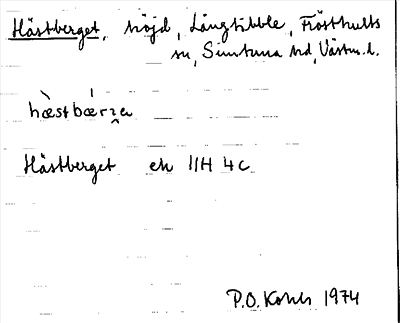 Hästberget, höjd, Långtibble, Frösthults
sn, Simtuna hd, Västm.l.
hæ̀stbæŕʒe̯
Hästberget ek 11H 4c
P.O. Kohls 1974